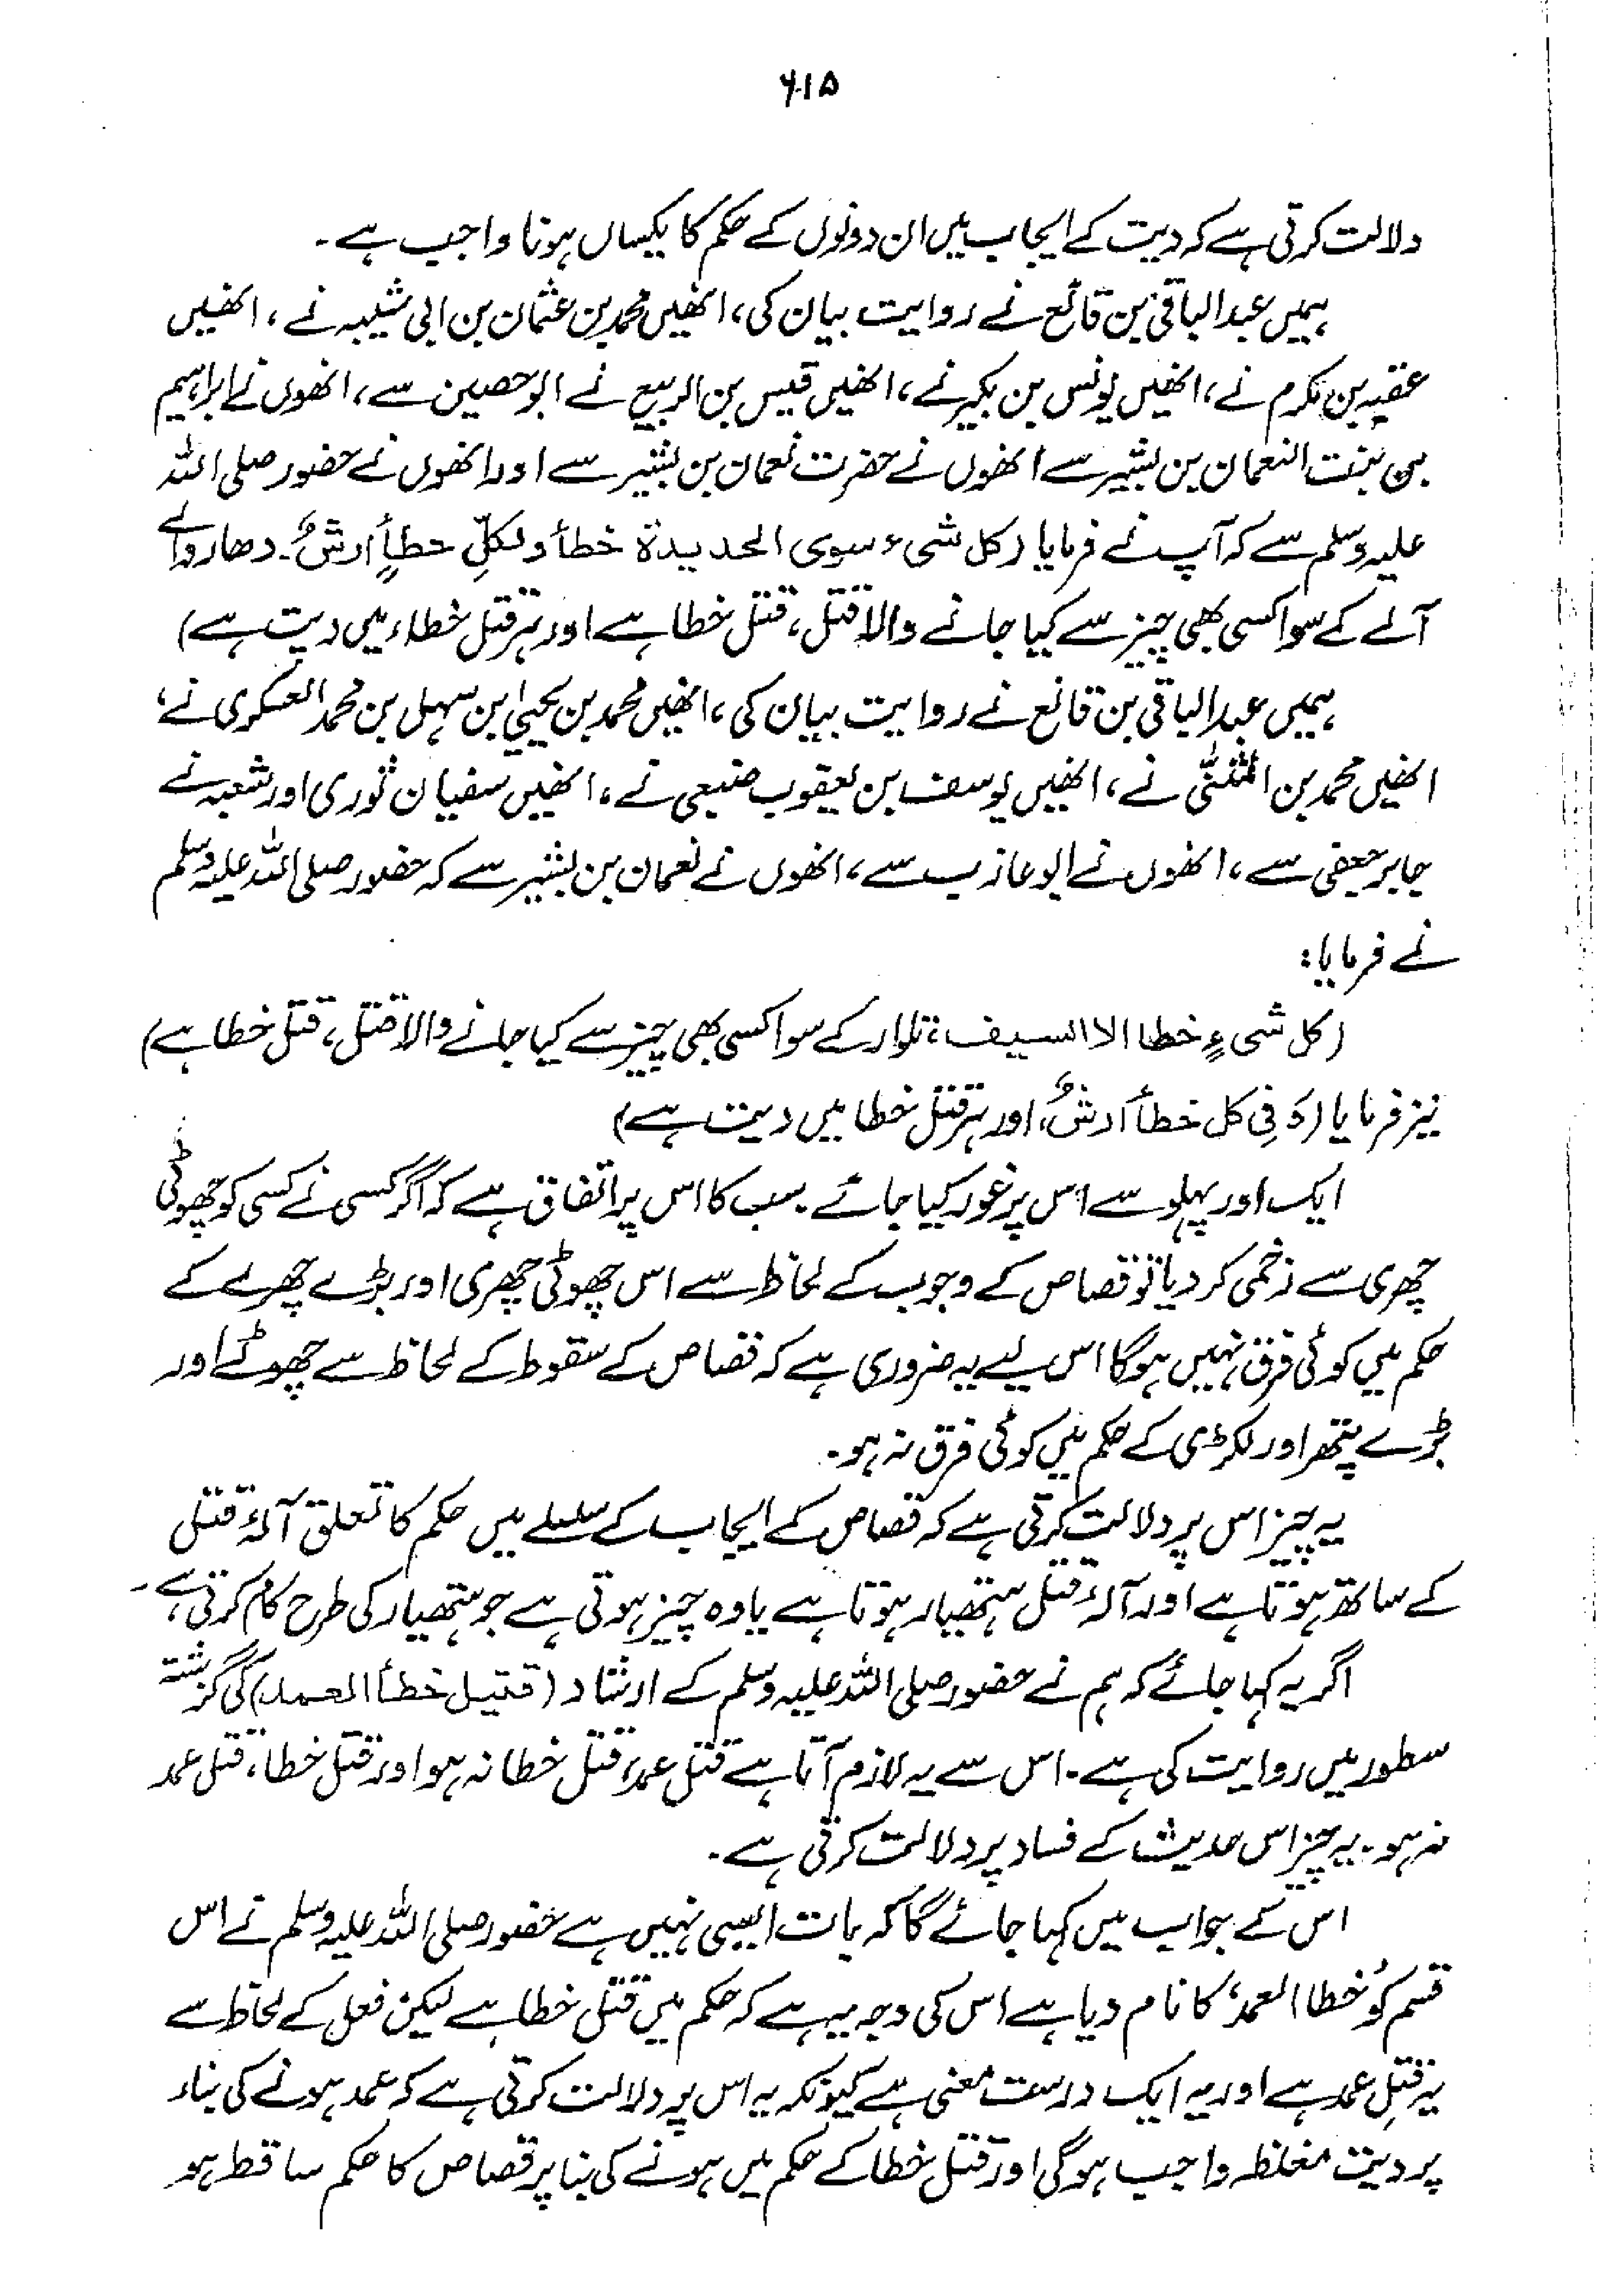 ۶۱۵
دلالت کرتی ہے کہ دیت کے ایجاب میں ان دونوں کے حکم کا یکساں ہونا واجب ہے۔
ہمیں عبدالباقی بن قانع نے روایت بیان کی، انھیں محمد بن عثمان بن ابی شیبہ نے، انھیں
عقبہ بن مکرم نے، انھیں یونس بن بکیر نے، انھیں قیس بن الربیع نے ابو حصین سے، انھوں نے ابراہیم
بن بنت النعمان بن بشیر سے انھوں نے حضرت نعمان بن بشیر سے اور انھوں نے حضور صلی اللہ
علیہ وسلم سے کہ آپ نے فرمایا (کل شیء سوی الحدیدۃ خطأ ولکلِّ خطأٍ ارشٌ۔ دھار والے
آلے کے سوا کسی بھی چیز سے کیا جانے والا قتل، قتل خطا ہے اور ہر قتل خطاء میں دیت ہے)
ہمیں عبدالباقی بن قانع نے روایت بیان کی، انھیں محمد بن یحییٰ بن سہل بن محمد العسکری نے،
انھیں محمد بن المثنّٰی نے، انھیں یوسف بن یعقوب ضبیعی نے، انھیں سفیان ثوری اور شعبہ نے
جابر جعفی سے، انھوں نے ابو عازب سے، انھوں نے نعمان بن بشیر سے کہ حضور صلی اللہ علیہ وسلم
نے فرمایا:
(کل شیءٍ خطا الا السیف، تلوار کے سوا کسی بھی چیز سے کیا جانے والا قتل، قتل خطا ہے)
نیز فرمایا (وَ فِی کل خطأ ارشٌ، اور ہر قتل خطا میں دیت ہے)
ایک اور پہلو سے اس پر غور کیا جائے۔ سب کا اس پر اتفاق ہے کہ اگر کسی نے کسی کو چھوٹی
چھری سے زخمی کر دیا تو قصاص کے وجوب کے لحاظ سے اس چھوٹی چھری اور بڑے چھرے کے
حکم میں کوئی فرق نہیں ہوگا اس لیے یہ ضروری ہے کہ قصاص کے سقوط کے لحاظ سے چھوٹے اور
بڑے پتھر اور لکڑی کے حکم میں کوئی فرق نہ ہو۔
یہ چیز اس پر دلالت کرتی ہے کہ قصاص کے ایجاب کے سلسلے میں حکم کا تعلق آلۂ قتل
کے ساتھ ہوتا ہے اور آلۂ قتل ہتھیار ہوتا ہے یا وہ چیز ہوتی ہے جو ہتھیار کی طرح کام کرتی ہے۔
اگر یہ کہا جائے کہ ہم نے حضور صلی اللہ علیہ وسلم کے ارشاد (قتیل خطأ العمد) کی گزشتہ
سطور میں روایت کی ہے۔ اس سے یہ لازم آتا ہے قتل عمد، قتل خطا نہ ہو اور قتل خطا، قتل عمد
نہ ہو۔ یہ چیز اس حدیث کے فساد پر دلالت کرتی ہے۔
اس کے جواب میں کہا جائے گا کہ بات ایسی نہیں ہے حضور صلی اللہ علیہ وسلم نے اس
قسم کو 'خطا العمد' کا نام دیا ہے اس کی وجہ یہ ہے کہ حکم میں قتل خطا ہے لیکن فعل کے لحاظ سے
یہ قتلِ عمد ہے اور یہ ایک درست معنی ہے کیونکہ یہ اس پر دلالت کرتی ہے کہ عمد ہونے کی بناء
پر دیت مغلظہ واجب ہوگی اور قتل خطا کے حکم میں ہونے کی بنا پر قصاص کا حکم ساقط ہو